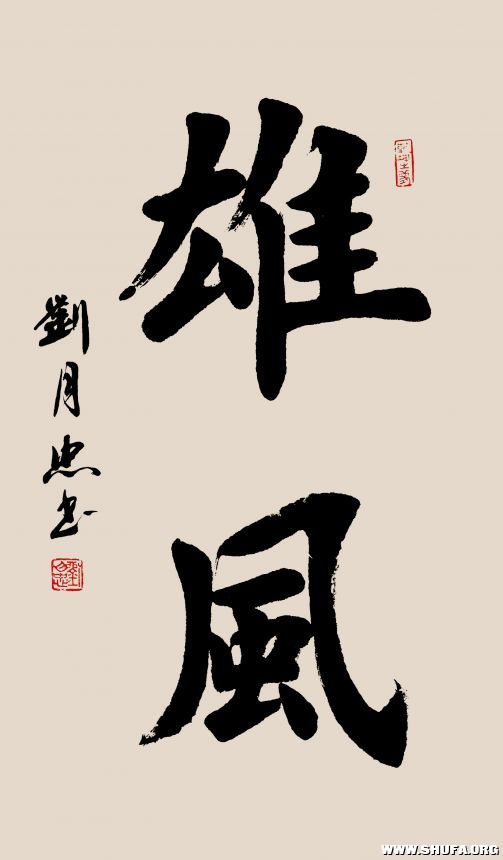 雄風
劉月忠书
WWW.SHUFA.ORG